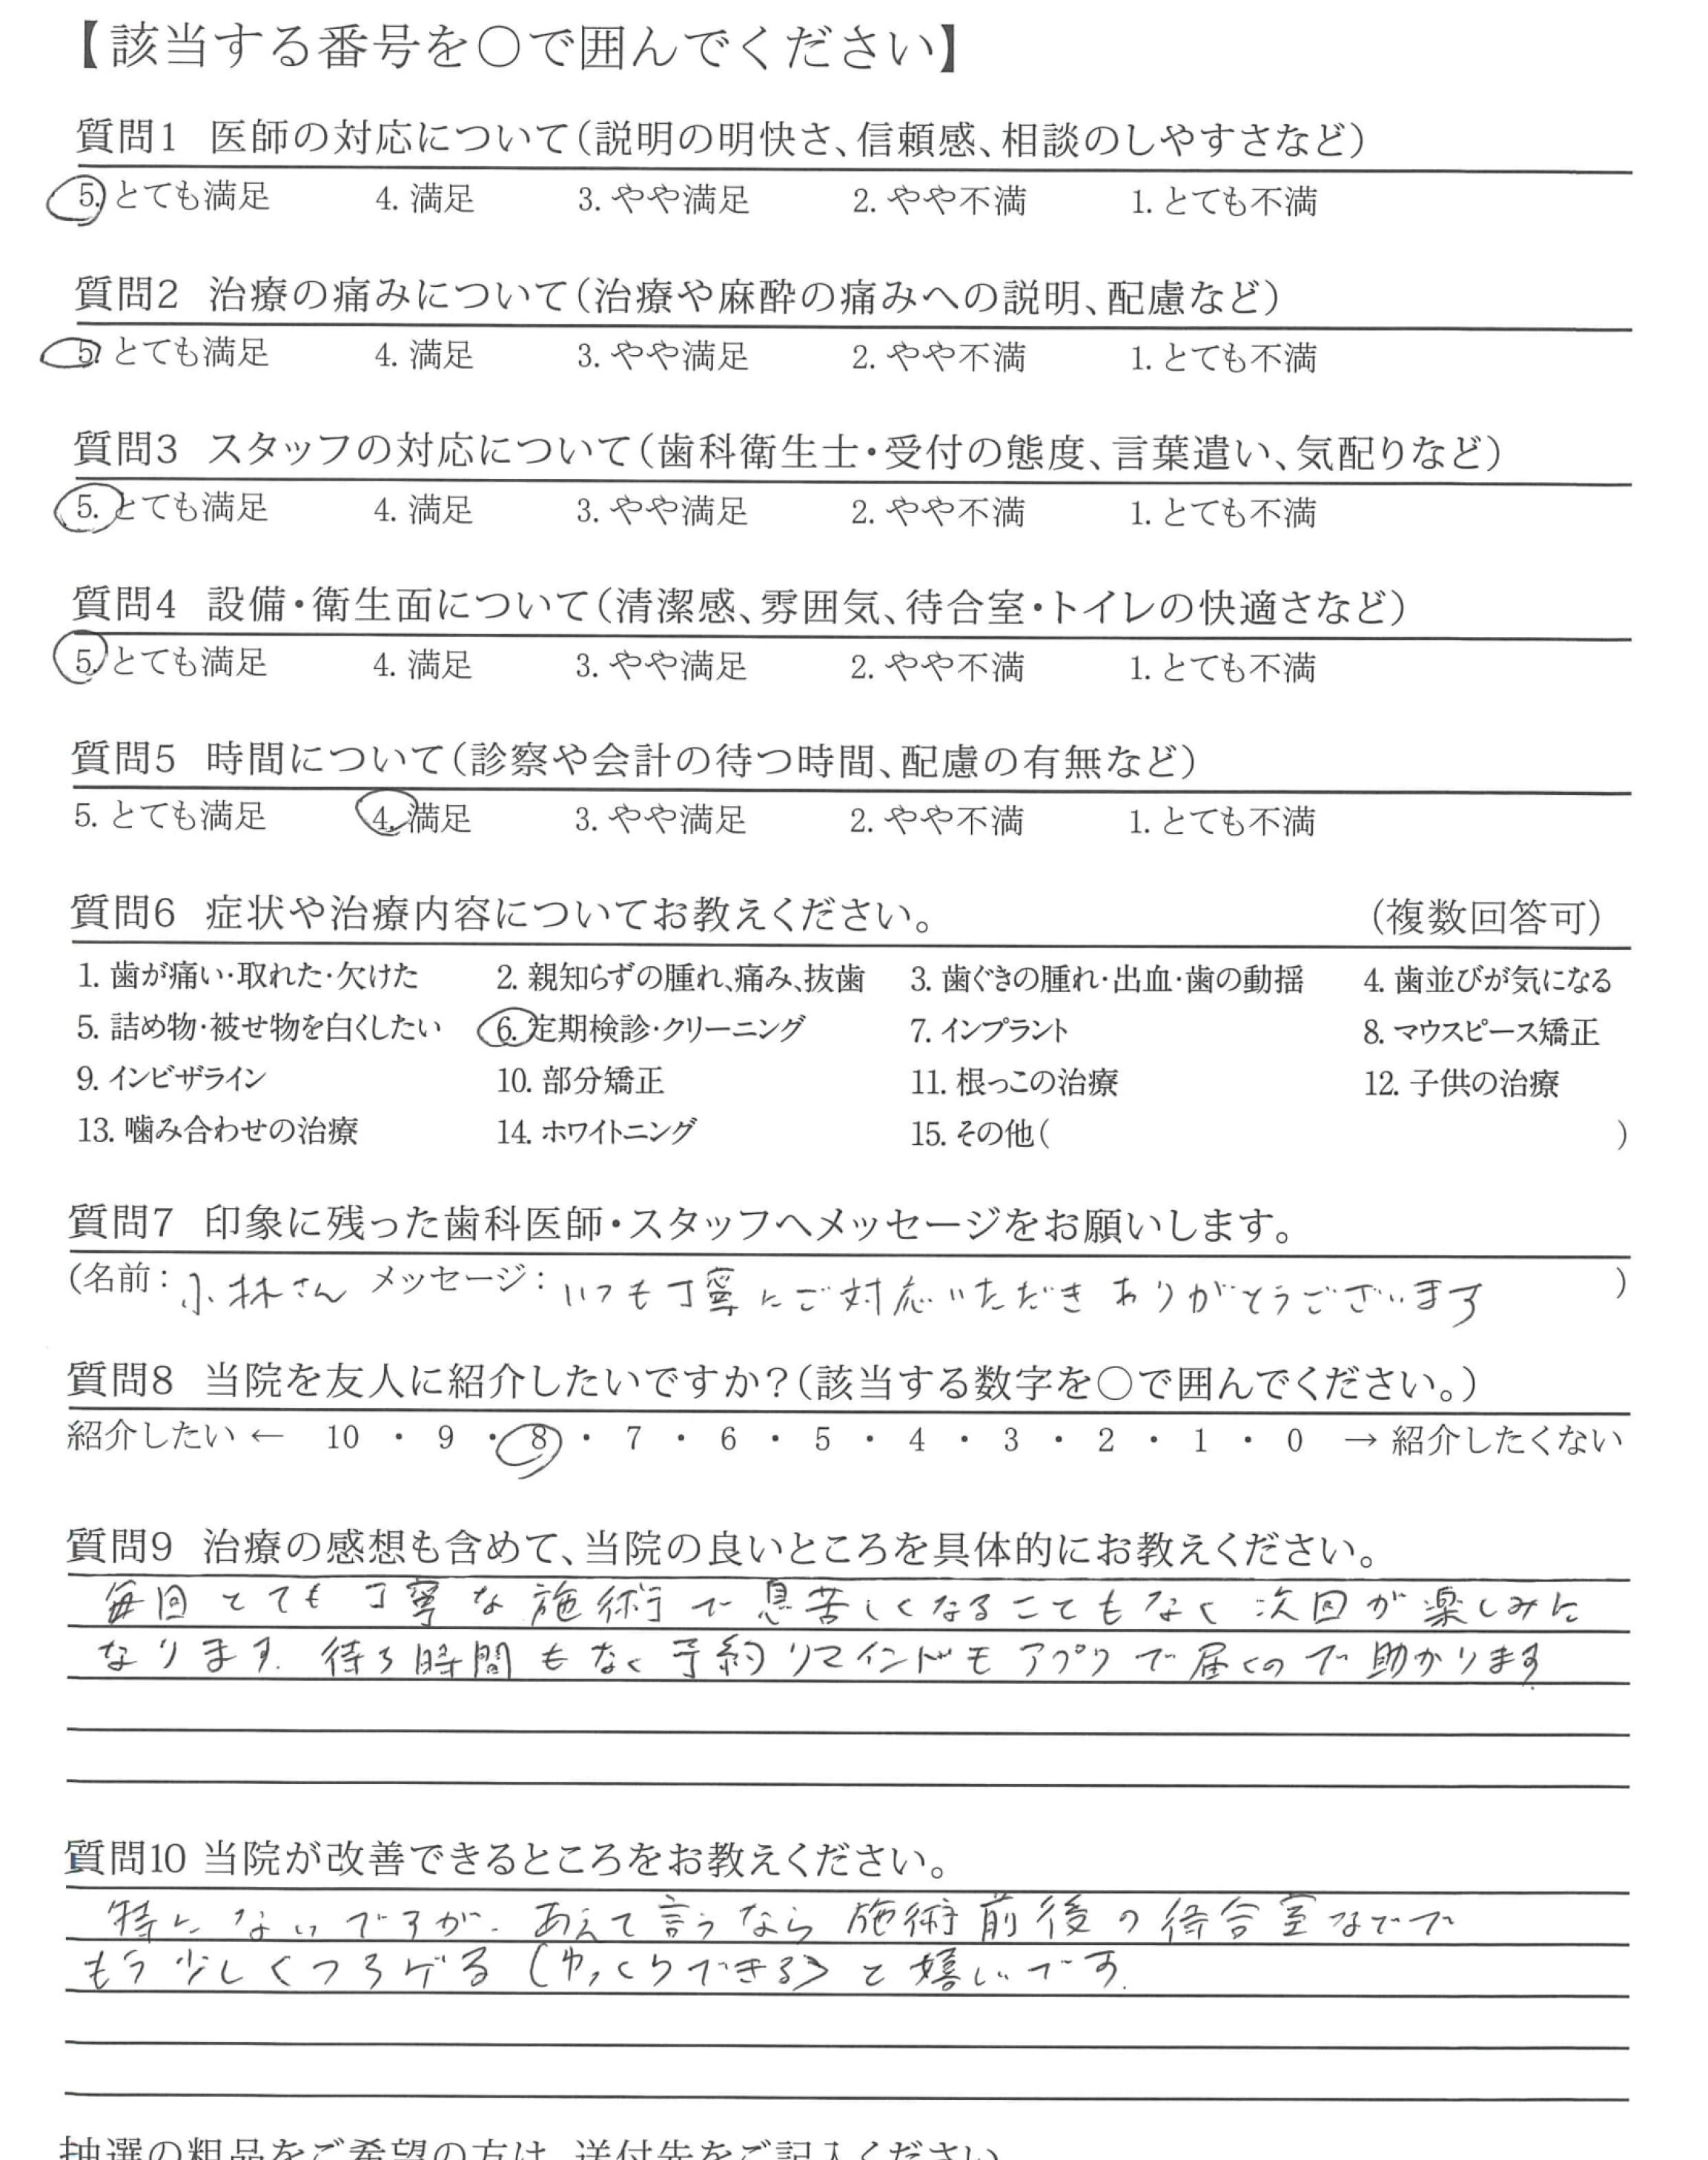 【該当する番号を○で囲んでください】
質問1 医師の対応について(説明の明快さ、信頼感、相談のしやすさなど)
5. とても満足 4. 満足 3. やや満足 2. やや不満 1. とても不満
質問2 治療の痛みについて(治療や麻酔の痛みへの説明、配慮など)
5. とても満足 4. 満足 3. やや満足 2. やや不満 1. とても不満
質問3 スタッフの対応について(歯科衛生士・受付の態度、言葉遣い、気配りなど)
5. とても満足 4. 満足 3. やや満足 2. やや不満 1. とても不満
質問4 設備・衛生面について(清潔感、雰囲気、待合室・トイレの快適さなど)
5. とても満足 4. 満足 3. やや満足 2. やや不満 1. とても不満
質問5 時間について(診察や会計の待つ時間、配慮の有無など)
5. とても満足 4. 満足 3. やや満足 2. やや不満 1. とても不満
質問6 症状や治療内容についてお教えください。 (複数回答可)
1. 歯が痛い・取れた・欠けた 2. 親知らずの腫れ、痛み、抜歯 3. 歯ぐきの腫れ・出血・歯の動揺 4. 歯並びが気になる
5. 詰め物・被せ物を白くしたい 6. 定期検診・クリーニング 7. インプラント 8. マウスピース矯正
9. インビザライン 10. 部分矯正 11. 根っこの治療 12. 子供の治療
13. 噛み合わせの治療 14. ホワイトニング 15. その他( )
質問7 印象に残った歯科医師・スタッフへメッセージをお願いします。
(名前: 小林さん メッセージ: いつも丁寧にご対応いただきありがとうございます )
質問8 当院を友人に紹介したいですか?(該当する数字を○で囲んでください。)
紹介したい ← 10 ・ 9 ・ 8 ・ 7 ・ 6 ・ 5 ・ 4 ・ 3 ・ 2 ・ 1 ・ 0 → 紹介したくない
質問9 治療の感想も含めて、当院の良いところを具体的にお教えください。
毎回とても丁寧な施術で息苦しくなることもなく次回が楽しみに
なります. 待ち時間もなく予約リマインドもアプリで届くので助かります.
質問10 当院が改善できるところをお教えください。
特にないですが、あえて言うなら施術前後の待合室などで
もう少しくつろげる(ゆっくりできる)と嬉しいです.
抽選の粗品をご希望の方は、送付先をご記入ください